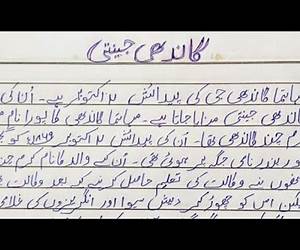 گاندھی جینتی
مہاتما گاندھی جی کی پیدائش ۲ اکتوبر ہے۔ اُن کی
گاندھی جینتی منایا جاتا ہے۔ مہاتما گاندھی کا پورا نام
کرم چند گاندھی تھا۔ اُن کی پیدائش ۲ اکتوبر ۱۸۶۹ کو
پور بندر نامی جگہ پر ہوئی تھی۔ اُن کے والد کا نام کرم چند
انھوں نے وکالت کی تعلیم حاصل کرنے کے بعد وکالت
لیکن اس کو چھوڑ کر دیش سیوا اور انگریزوں کی غلامی